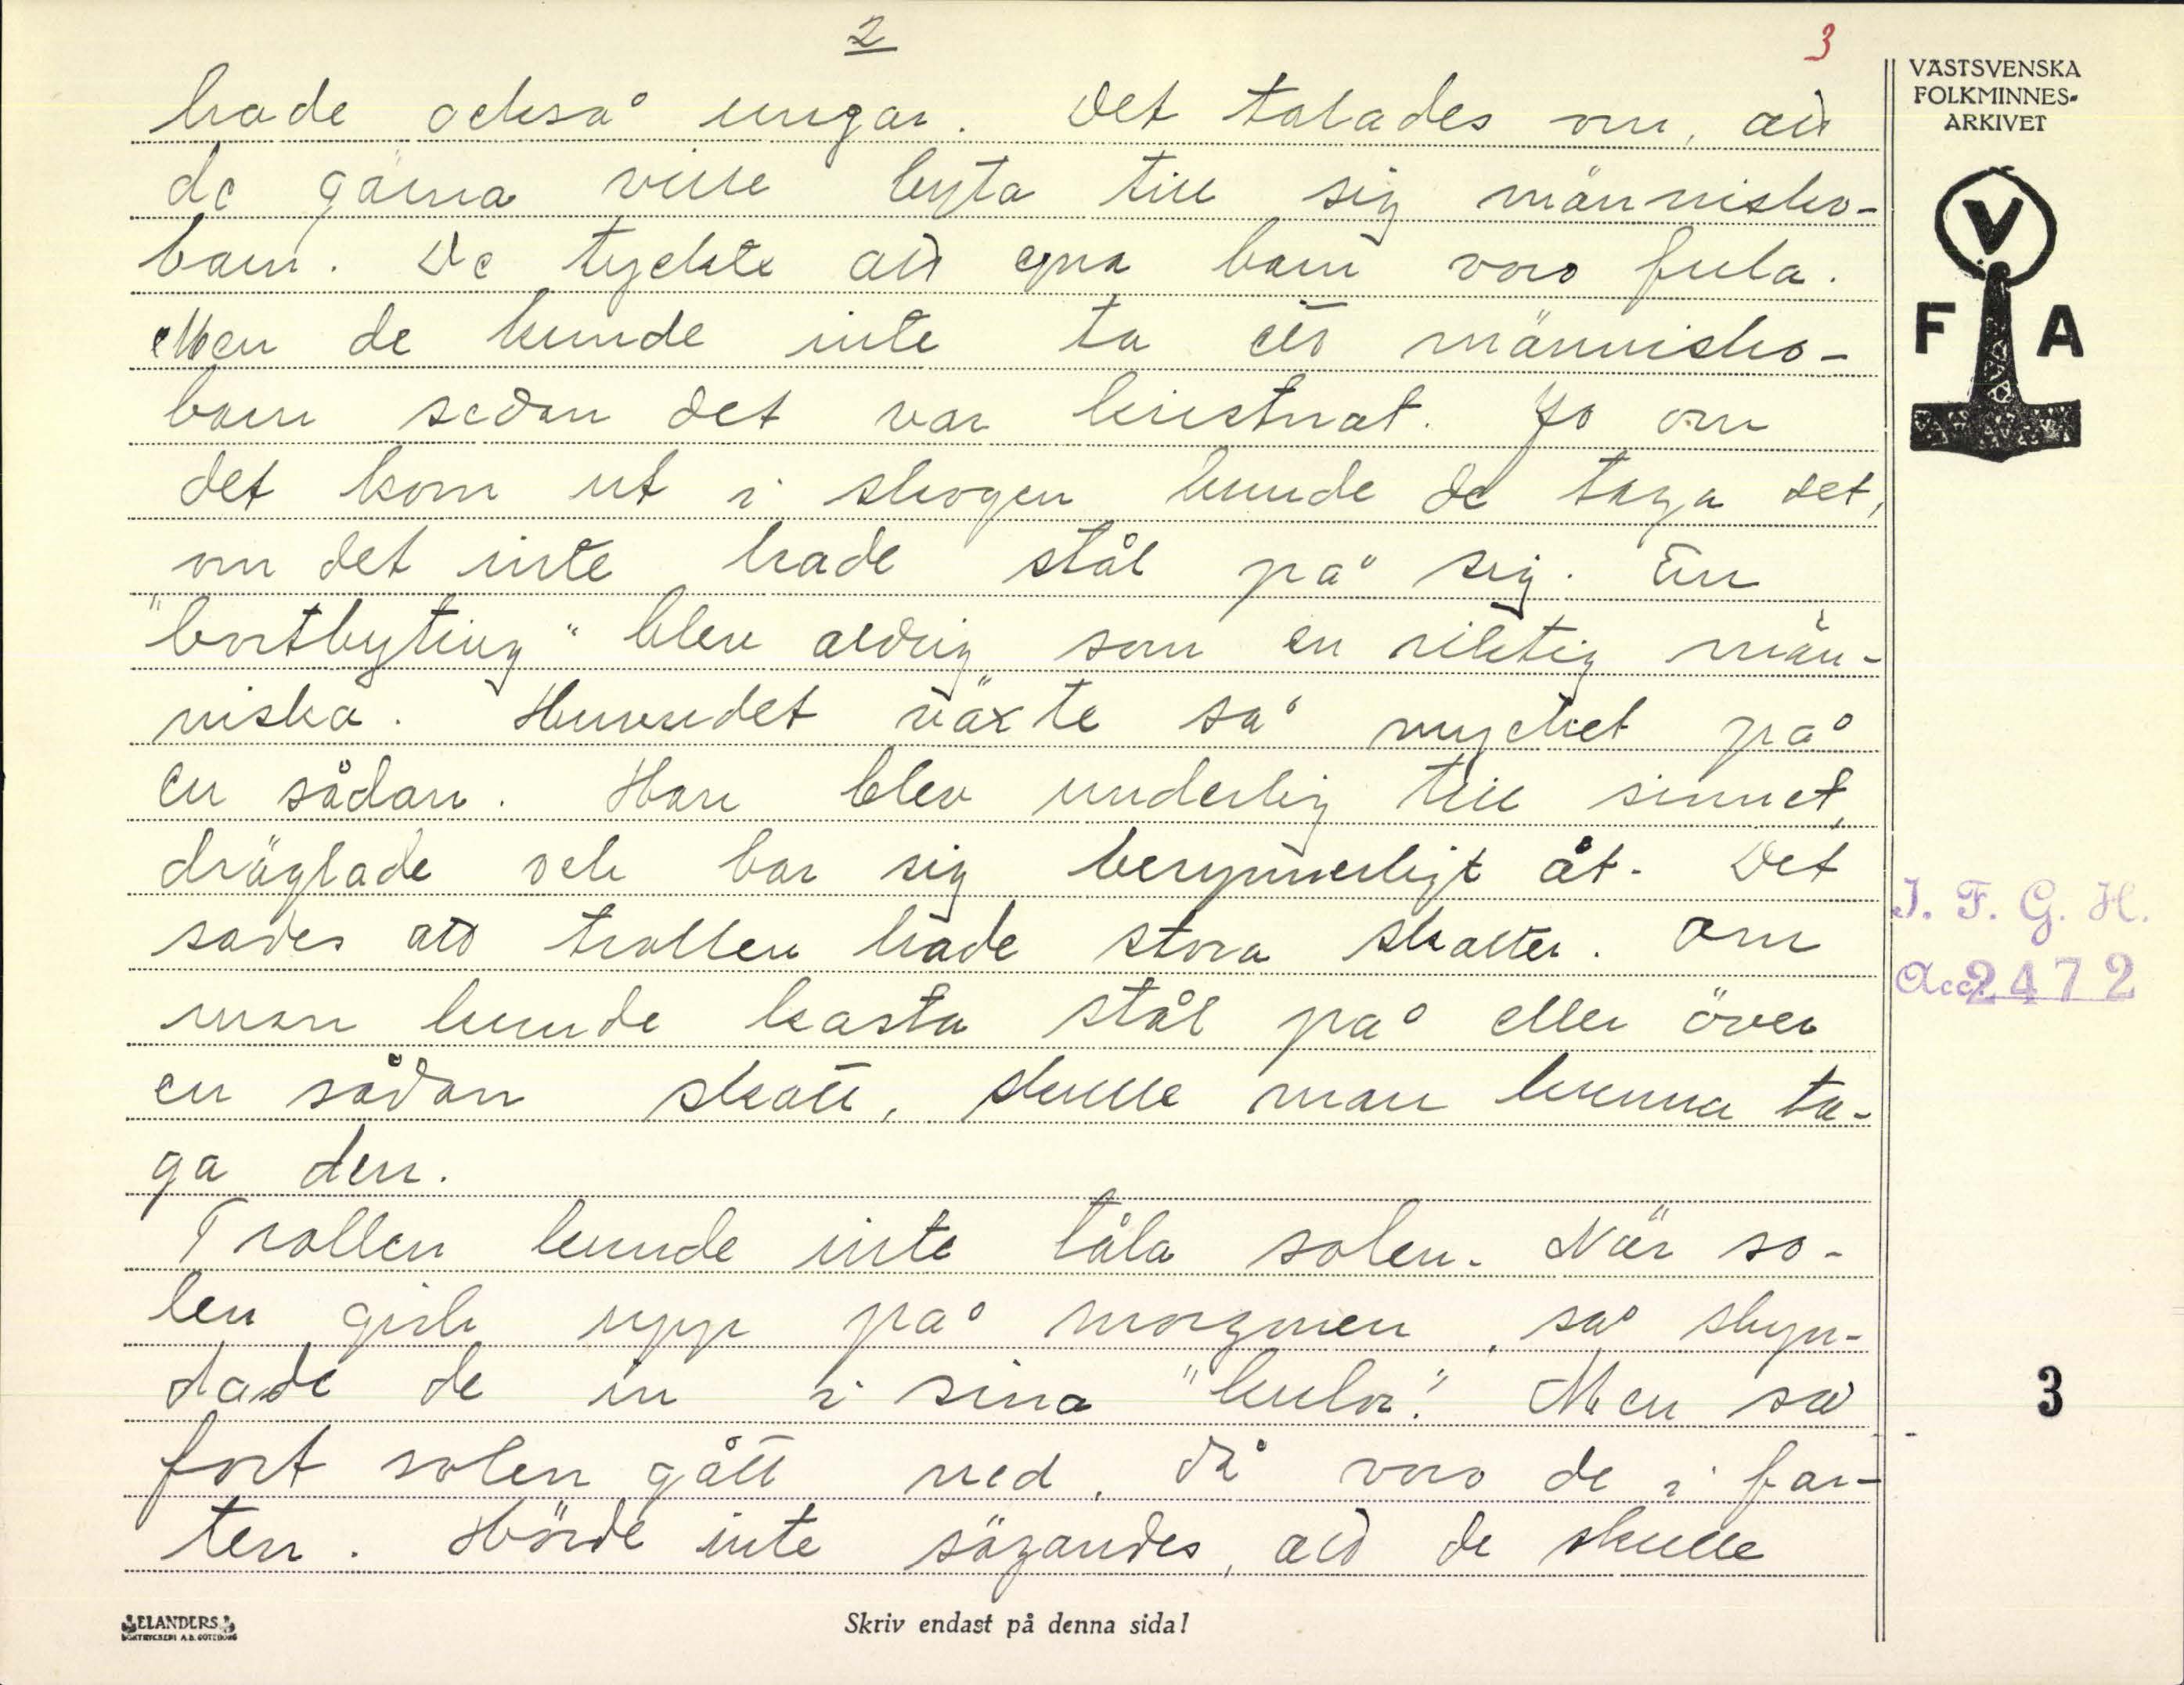 2
3
hade också ungar. Det talades om, att
de gärna ville byta till sig människo-
barn. De tyckte att egna barn voro fula.
Men de kunde inte ta ett människo-
barn sedan det var kristnat. Jo om
det kom ut i skogen kunde de taga det,
om det inte hade stål på sig. En
"bortbyting" blev aldrig som en riktig män-
niska. Huvudet växte så mycket på
en sådan. Han blev underlig till sinnet,
dräglade och bar sig besynnerligt åt. Det
sades att trollen hade stora skatter. Om
man kunde kasta stål på eller över
en sådan skatt, skulle man kunna ta-
ga den.
Trollen kunde inte tåla solen. När so-
len gick upp på morgonen, så skyn-
dade de in i sina "kulor." Men så
fort solen gått ned, då voro de i far-
ten. Hörde inte sägandes, att de skulle
VÄSTSVENSKA
FOLKMINNES-
ARKIVET
V
F A
I. F. G. H.
Acc. 2472
3
ELANDERS
BOKTRYCKERI A.B. GÖTEBORG
Skriv endast på denna sida!